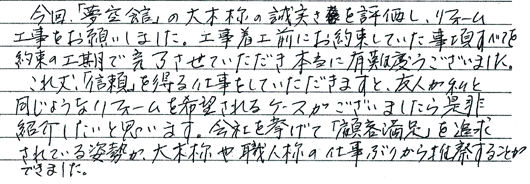 今回、「夢空館」の大木様の誠実さを評価し、リフォーム
工事をお願いしました。工事着工前にお約束していた事項すべてを
約束の工期で完了させていただき本当に有難度うございました。
これ大、「信頼」を得る仕事をしていただきますと、友人が私と
同じようなリフォームを希望されるケースがございましたら是非
紹介したいと思います。会社を挙げて「顧客満足」を追求
されている姿勢が、大木様や職人様の仕事ぶりから推察することが
できました。